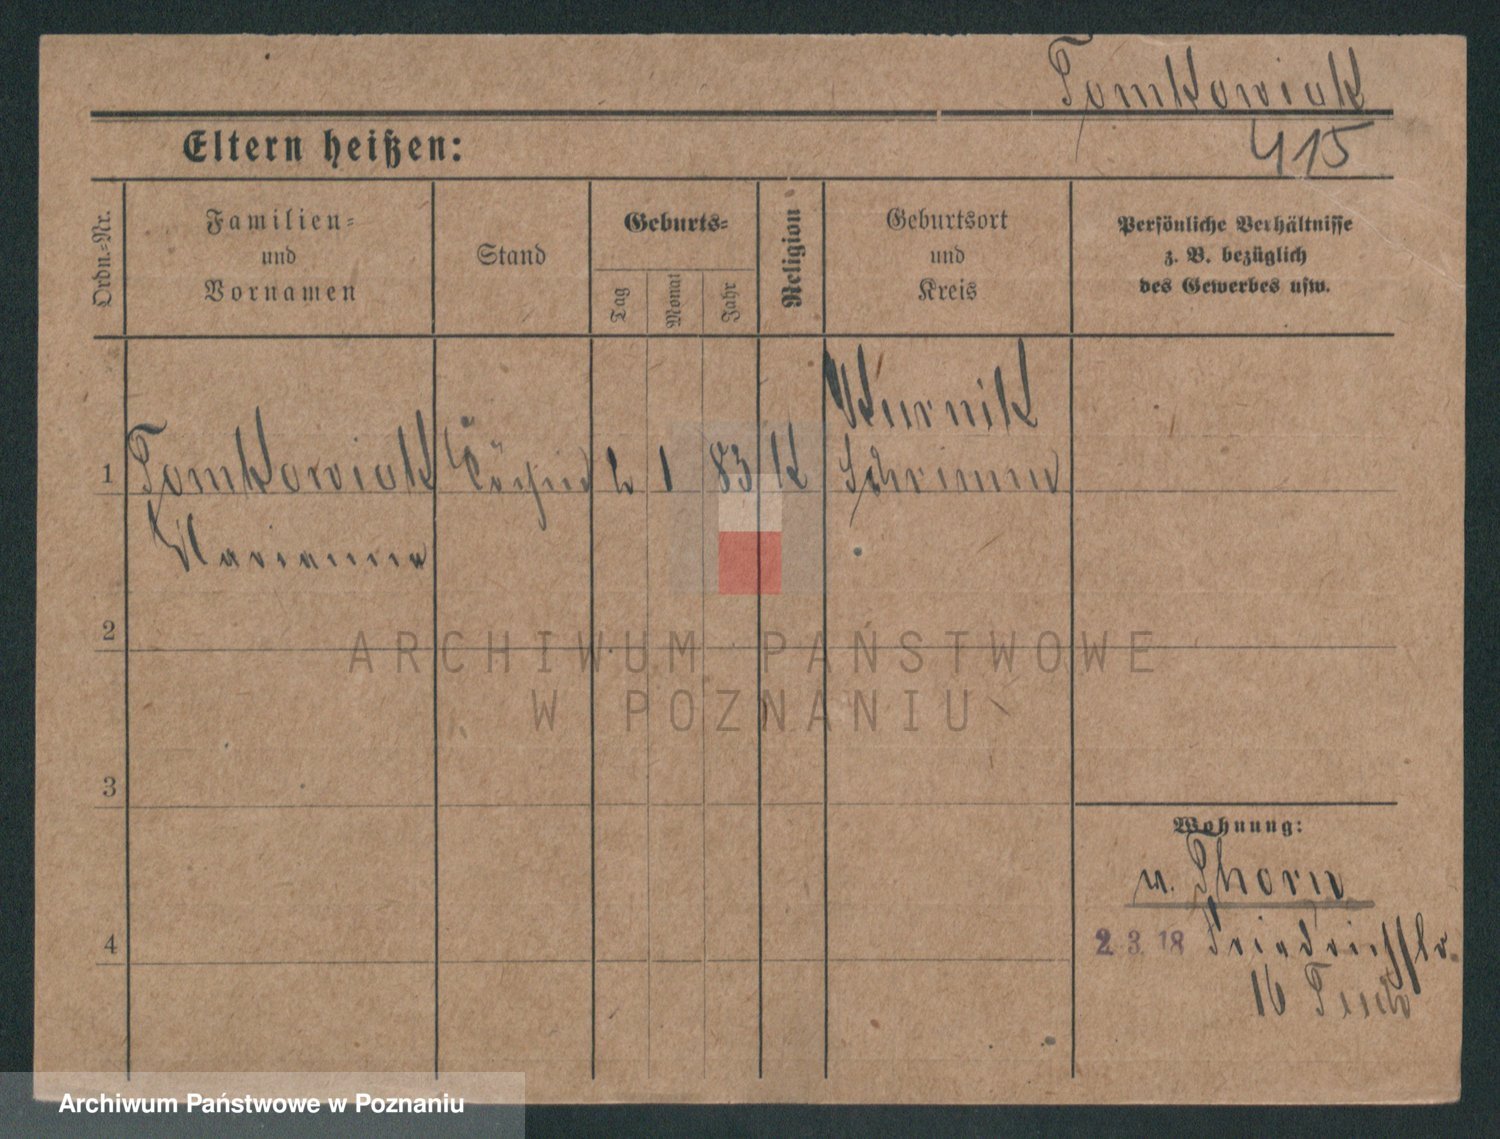 Tomkowiak
415
Eltern heißen:
Ordn.=Nr.
Familien=
und
Vornamen
Stand
Geburts=
Tag
Monat
Jahr
Religion
Geburtsort
und
Kreis
Persönliche Verhältnisse
z. B. bezüglich
des Gewerbes usw.
1
Tomkowiak
Marianna
Köchin
2
1
83
K
Kurnik
Schrimm
2
3
4
Wohnung:
n. Thorn
2. 3. 18 Friedrichstr.
16
ARCHIWUM PAŃSTWOWE
W POZNANIU
Archiwum Państwowe w Poznaniu